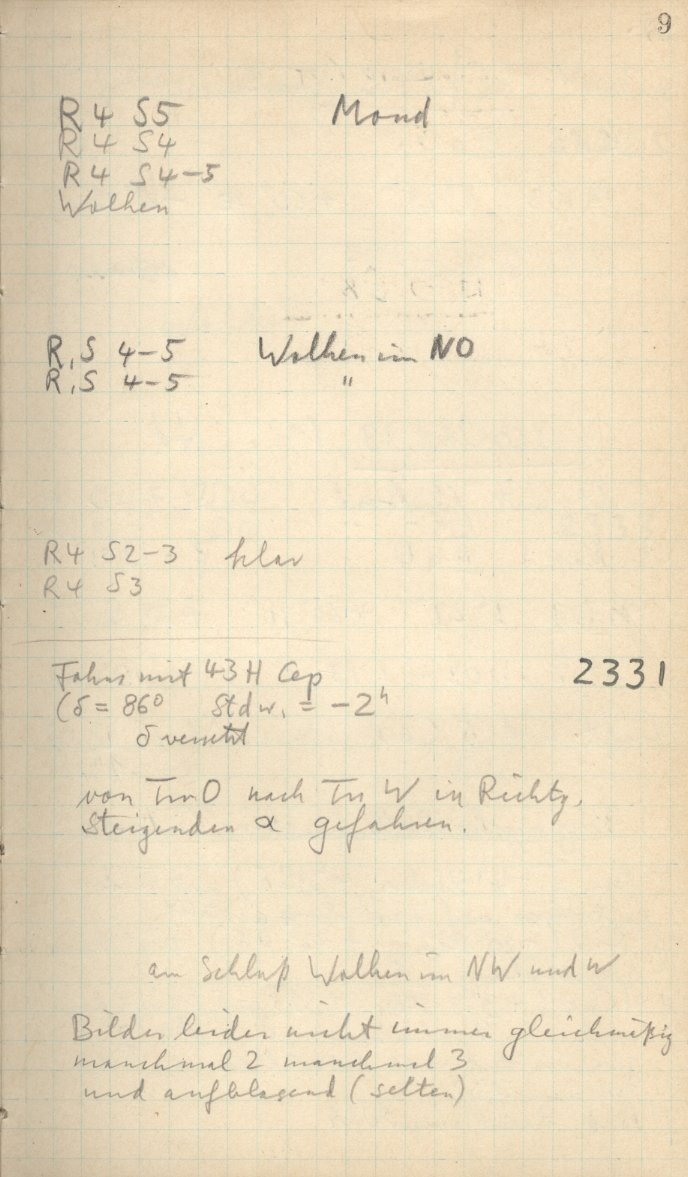 9
R 4 S5 Mond
R 4 S4
R 4 S4-5
Wolken
R,S 4-5 Wolken im NO
R,S 4-5 "
R4 S2-3 klar
R4 S3
mit 43 H Cep 2331
(δ = 86° Stdw. = -2ʰ
δ
von O nach W in Richtg.
Steigenden α gefahren.
am Schluß Wolken im NW und W
Bilder leider nicht immer gleichmäßig
manchmal 2 manchmal 3
und aufblasend (selten)